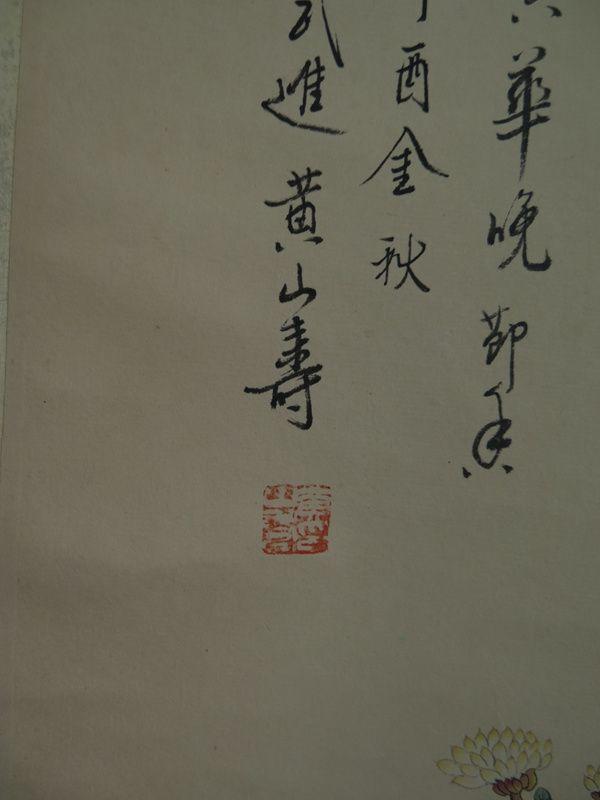 華晚節香
酉金秋
武進黃山壽